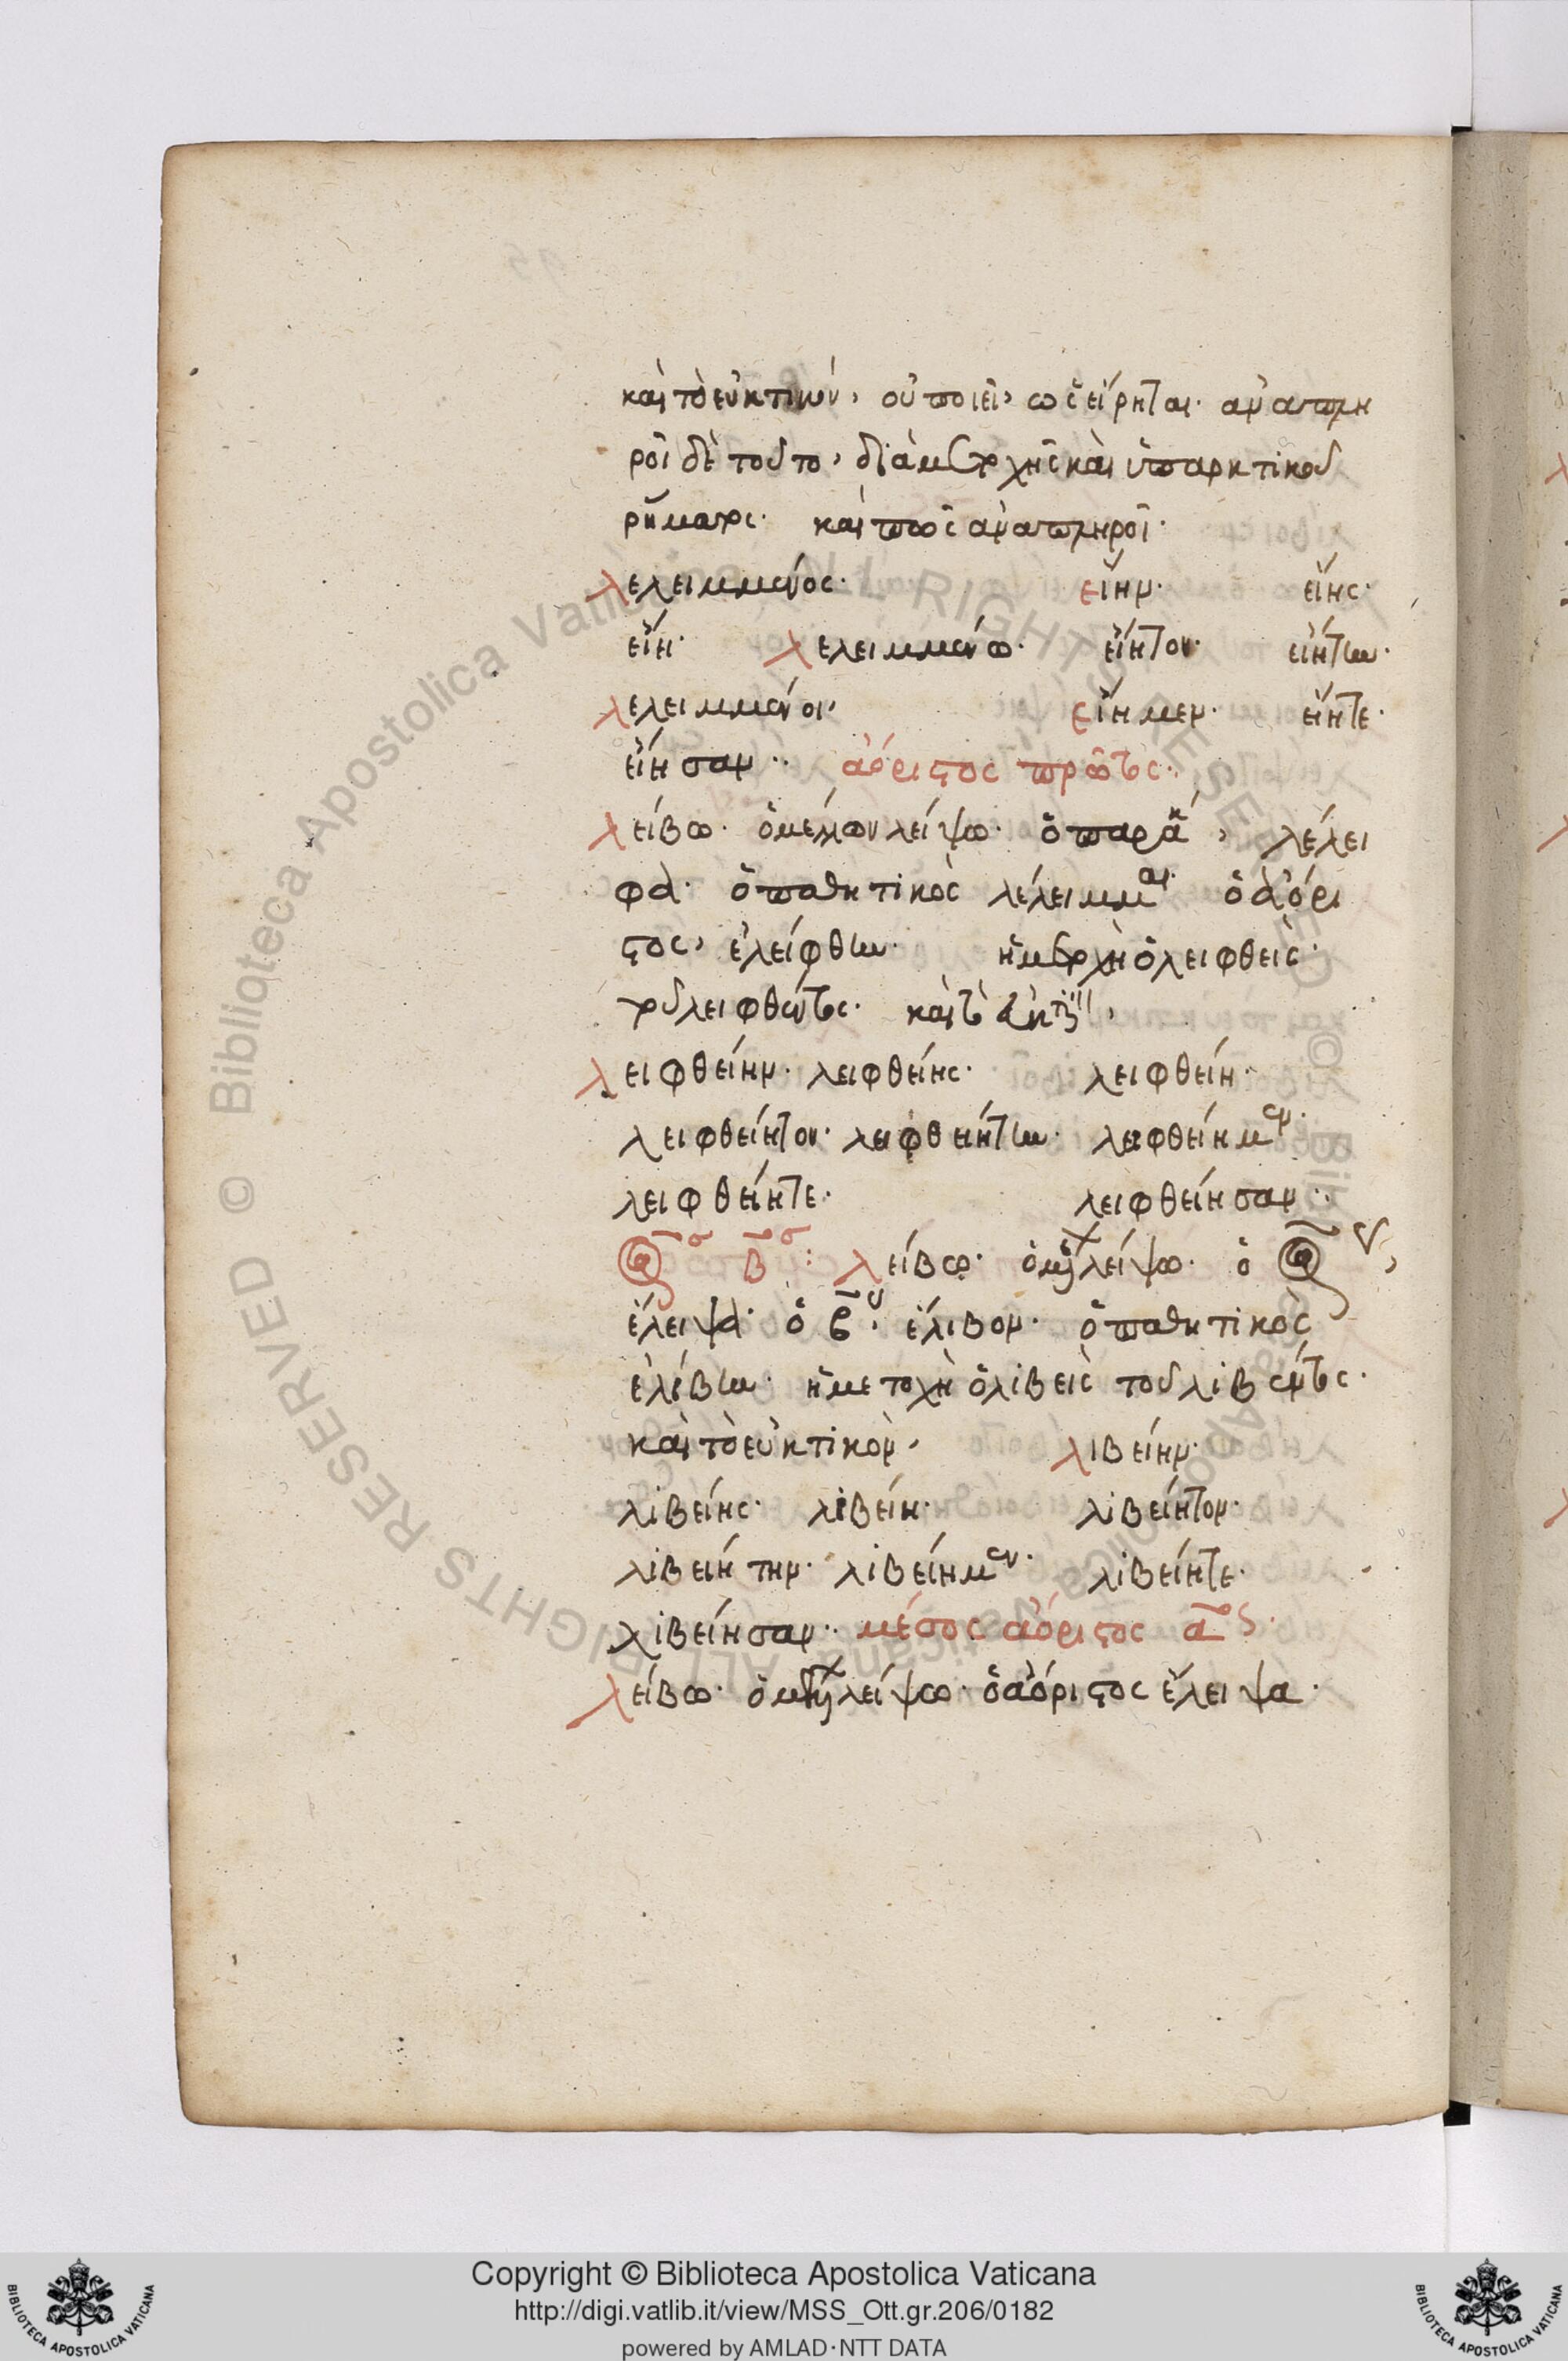 καὶ τὸ εὐκτικὸν, οὐ ποιεῖ, ὡς εἴρηται· ἀναπλη
ροῖ δὲ τοῦτο, διὰ μετοχῆς καὶ ὑπαρκτικοῦ
ῥήματος· καὶ πῶς ἀναπληροῖ·
λελειμμένος· εἴην· εἴης·
εἴη· λελειμμένω· εἴητον· εἰήτην·
λελειμμένοι, εἴημεν· εἴητε·
εἴησαν·· ἀόριστος πρῶτος··
λείβω· ὁ μέλλων λείψω· ὁ παρακ, λέλει
φα· ὁ παθητικὸς λέλειμμαι· ὁ ἀόρι
στος, ἐλείφθην· ἡ μετοχὴ ὁ λειφθεὶς·
τοῦ λειφθέντος· καὶ τὸ εὐκτι,
λειφθείην· λειφθείης· λειφθείη·
λειφθείητον· λειφθειήτην· λειφθείημεν·
λειφθείητε· λειφθείησαν··
β : λείβω· ὁ μελ λείψω· ὁ
ἔλειψα· ὁ β· ἔλιβον· ὁ παθητικὸς
ἐλίβην· ἡ μετοχὴ ὁ λιβεὶς τοῦ λιβέντος·
καὶ τὸ εὐκτικὸν, λιβείην·
λιβείης· λιβείη· λιβείητον·
λιβειήτην· λιβείημεν· λιβείητε·
λιβείησαν·· μέσος ἀόριστος α·
λείβω· ὁ μελ λείψω· ὁ ἀόριστος ἔλειψα·
Biblioteca Apostolica Vaticana ALL RIGHTS RESERVED ©
Copyright © Biblioteca Apostolica Vaticana
http://digi.vatlib.it/view/MSS_Ott.gr.206/0182
powered by AMLAD·NTT DATA
BIBLIOTECA APOSTOLICA VATICANA
BIBLIOTECA APOSTOLICA VATICANA